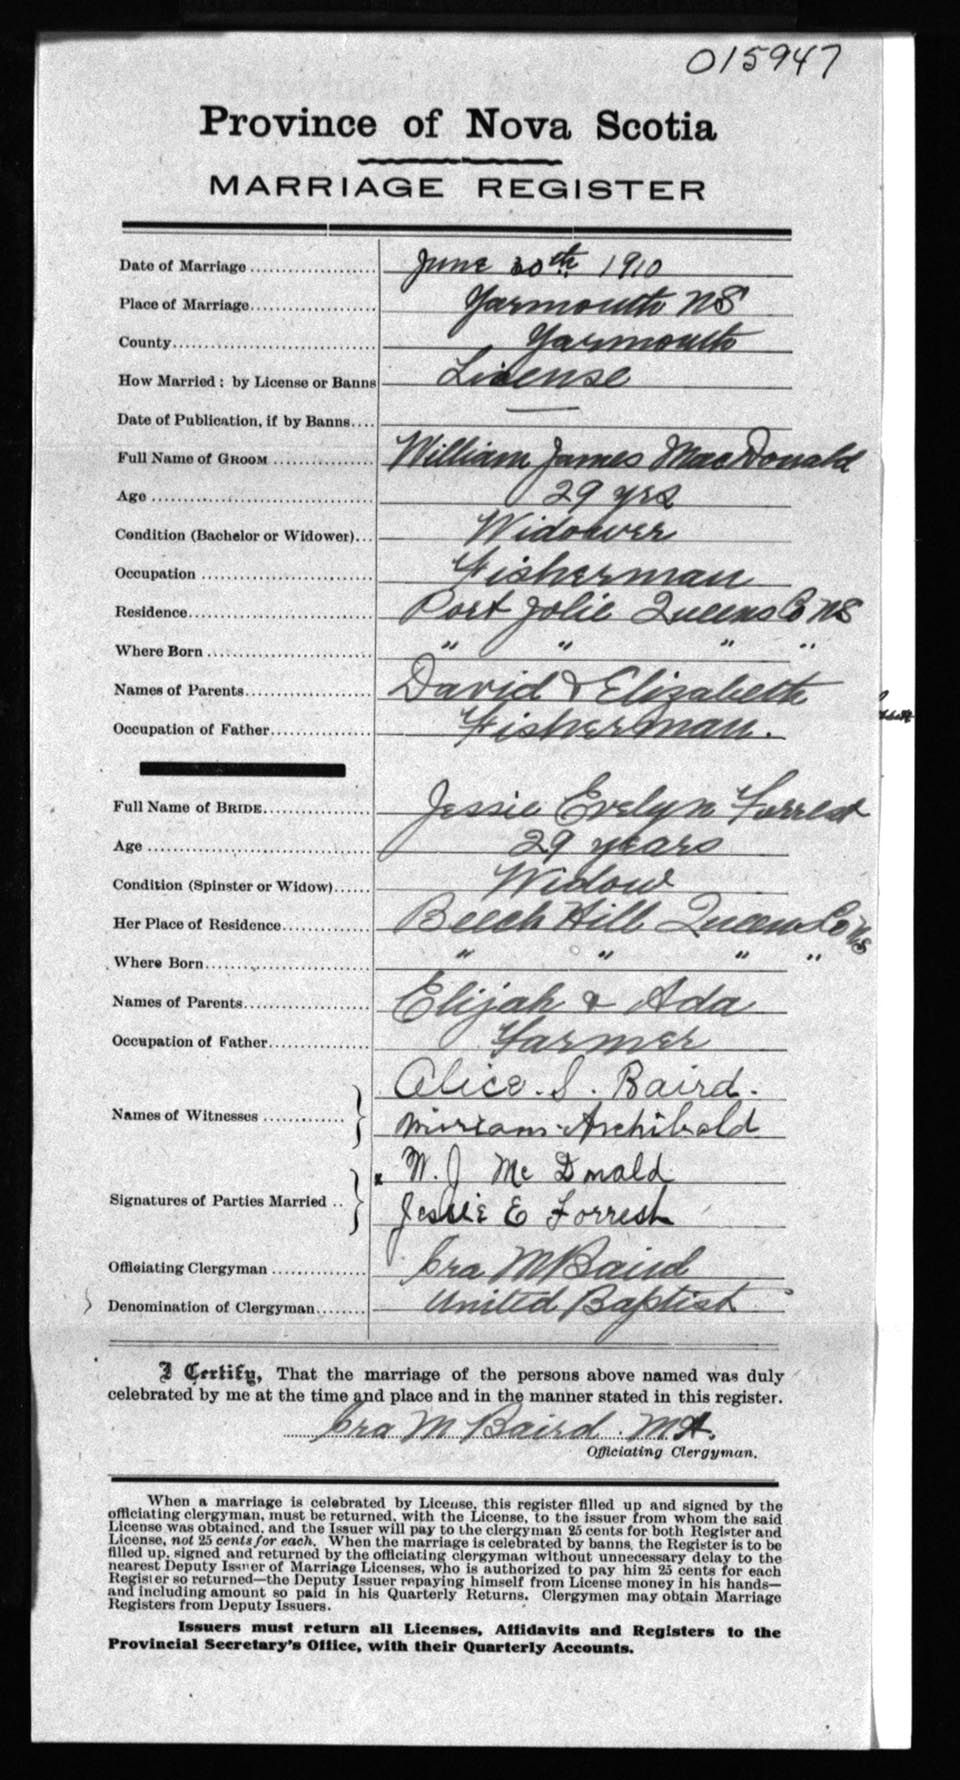 015947
Province of Nova Scotia
MARRIAGE REGISTER
Date of Marriage .................... June 30th 1910
Place of Marriage.................... Yarmouth NS
County................................ Yarmouth
How Married: by License or Banns License
Date of Publication, if by Banns.... —
Full Name of GROOM ................ William James MacDonald
Age ................................... 29 yrs
Condition (Bachelor or Widower)... Widower
Occupation ........................... Fisherman
Residence............................. Port Jolie Queens Co NS
Where Born .......................... " " " "
Names of Parents.................... David & Elizabeth
Occupation of Father................ Fisherman.
Full Name of BRIDE................. Jessie Evelyn Forrest
Age ................................... 29 years
Condition (Spinster or Widow)...... Widow
Her Place of Residence.............. Beech Hill Queens Co NS
Where Born.......................... " " " "
Names of Parents.................... Elijah & Ada
Occupation of Father................ Farmer
Alice. S. Baird.
Names of Witnesses ............
Miriam Archibald
x W. J. Mc Donald
Signatures of Parties Married ..
Jessie E Forrest
Officiating Clergyman ............... Ira M Baird
Denomination of Clergyman........ United Baptist
I Certify, That the marriage of the persons above named was duly
celebrated by me at the time and place and in the manner stated in this register.
Ira M Baird. M.A.
Officiating Clergyman.
When a marriage is celebrated by License, this register filled up and signed by the
officiating clergyman, must be returned, with the License, to the issuer from whom the said
License was obtained, and the Issuer will pay to the clergyman 25 cents for both Register and
License, not 25 cents for each. When the marriage is celebrated by banns, the Register is to be
filled up, signed and returned by the officiating clergyman without unnecessary delay to the
nearest Deputy Issuer of Marriage Licenses, who is authorized to pay him 25 cents for each
Register so returned—the Deputy Issuer repaying himself from License money in his hands—
and including amount so paid in his Quarterly Returns. Clergymen may obtain Marriage
Registers from Deputy Issuers.
Issuers must return all Licenses, Affidavits and Registers to the
Provincial Secretary's Office, with their Quarterly Accounts.